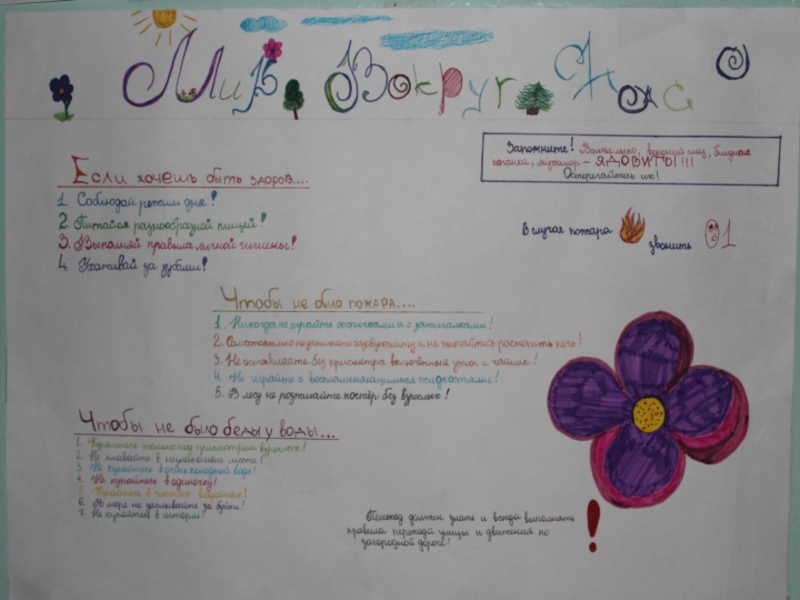 Мир Вокруг Нас
Запомните! Волчье лыко, вороний глаз, бледная
поганка, мухомор - ЯДОВИТЫ!!!
Остерегайтесь их!
Если хочешь быть здоров....
1. Соблюдай режим дня!
2. Питайся разнообразной пищей!
3. Выполняй правила личной гигиены!
4. Ухаживай за зубами!
В случае пожара звонить 01
Чтобы не было пожара....
1. Никогда не играйте со спичками и с зажигалками!
2. Самостоятельно не включайте газовую плиту и не пытайтесь растопить печь!
3. Не оставляйте без присмотра включённый утюг и чайник!
4. Не играйте с воспламеняющимися жидкостями!
5. В лесу не разжигайте костёр без взрослых!
Чтобы не было беды у воды...
1. Купайтесь только под присмотром взрослых!
2. Не плавайте в незнакомом месте!
3. Не купайтесь в очень холодной воде!
4. Не купайтесь в одиночку!
5. Купайтесь в чистых водоёмах!
6. В море не заплывайте за буйки!
7. Не купайтесь в шторм!
Пешеход должен знать и всегда выполнять
правила перехода улицы и движения по
загородной дороге!